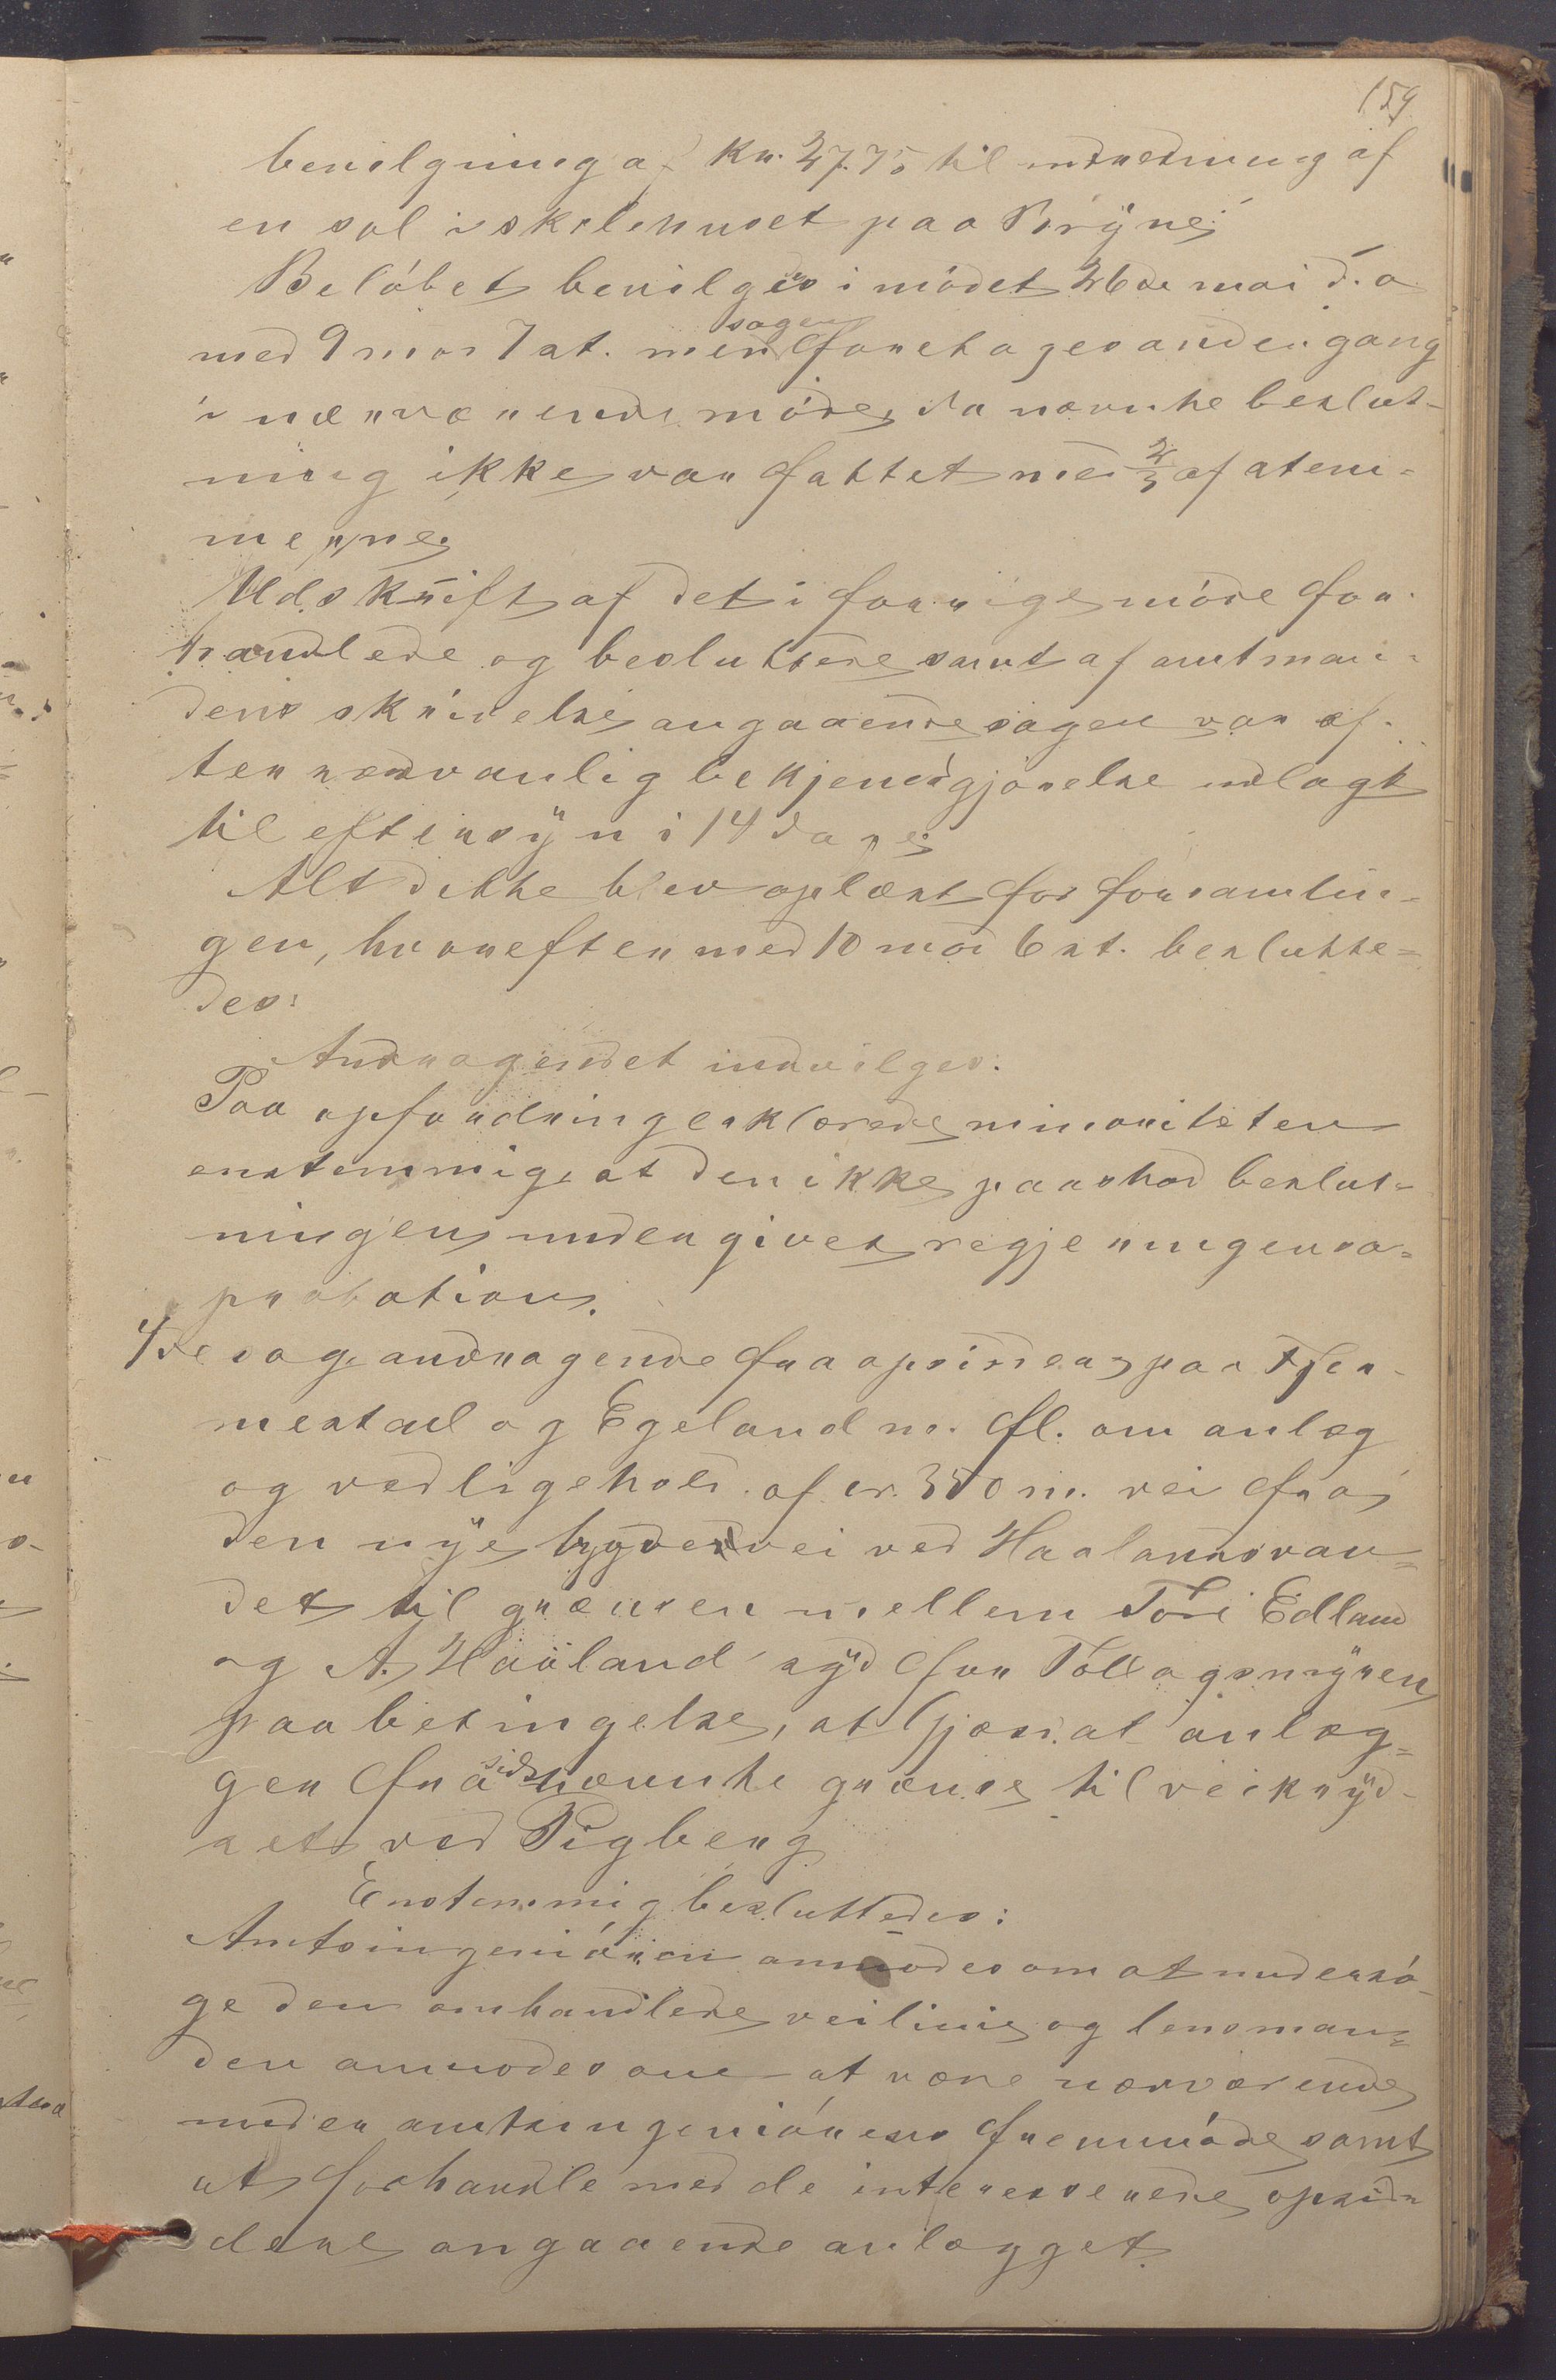 159
bevilgning af kr. 27.75 til indredning af
en sal i skolehuset paa Bryne.
Beløbet bevilgedes i mødet 26de mai d. a
med 9 mod 7 st. men sagen foretages anden gang
i nærværende møde, da nævnte beslut-
ning ikke var fattet med 2/3 af stem-
merne.
Udskrift af det i forrige møde for-
handlede og besluttede samt af amtman-
dens skrivelse angaaende sagen var ef-
ter sedvanlig bekjendtgjørelse udlagt
til eftersyn i 14 dage.
Alt dette blev oplæst for forsamlin-
gen, hvorefter med 10 mod 6 st. beslutte-
des:
Andragendet indvilges.
Paa opfordring erklærede minoriteten
enstemmig, at den ikke paastod beslut-
ningen undergivet regjeringens a-
probation.
4de sag, andragende fra opsiddere paa Tjer-
mestad og Egeland m. fl. om anlæg
og vedligehold af cr. 350 m. vei fra
den nye bygdevei ved Haalandsvan-
det til grænsen mellem Tori Edland
og A. Haaland syd for Tollagsmyren
paa betingelse, at Gjesdal anlæg-
ger fra sidstnævnte grænse til veikryd-
set ved Pigberg
Enstemmig besluttedes:
Amtsingeniøren anmodes om at undersø-
ge den omhandlede veilinie og lensman-
den anmodes om at være nærværende
under amtsingeniørens fremmøde samt
at forhandle med de interesserede opsid-
dere angaaende anlægget.